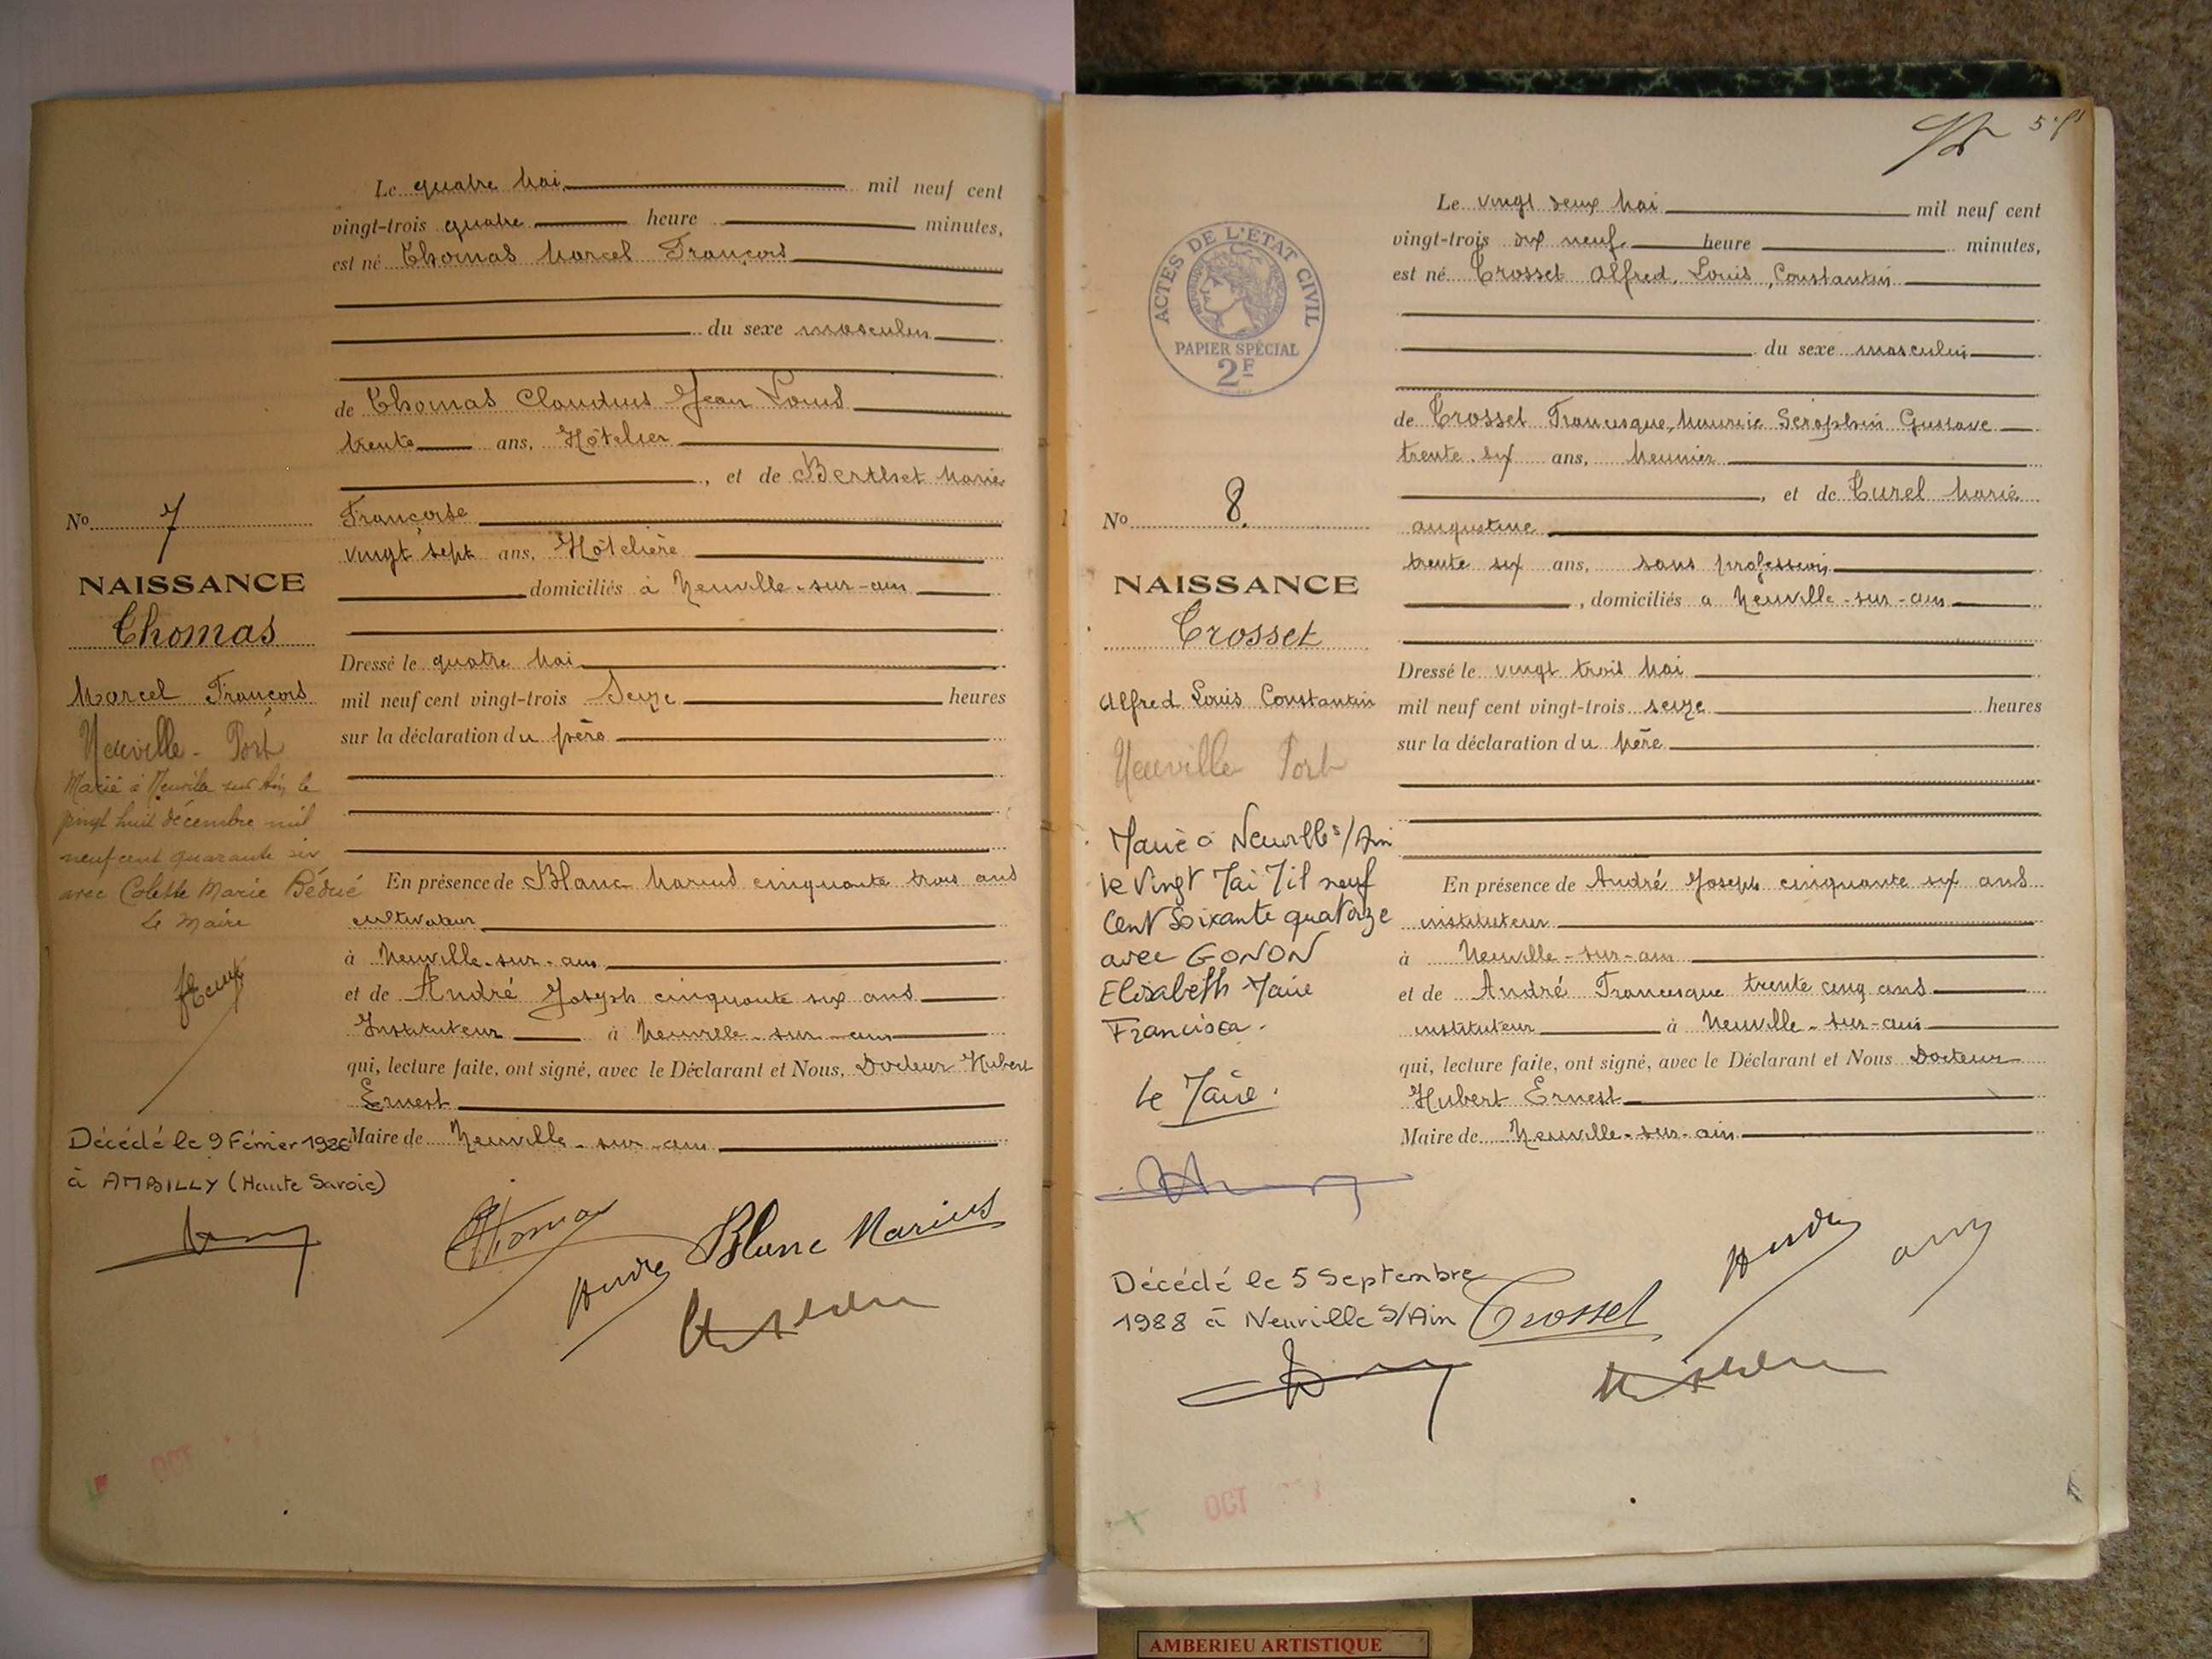 Le quatre Mai mil neuf cent
vingt-trois quatre heure minutes,
est né Thomas Marcel François
du sexe masculin
de Thomas Claudius Jean Louis
trente ans, Hôtelier
, et de Berthet Marie
Françoise
vingt sept ans, Hôtelière
domiciliés à Neuville-sur-ain
Dressé le quatre Mai
mil neuf cent vingt-trois Seize heures
sur la déclaration du père
En présence de Blanc Marius cinquante trois ans
cultivateur
à Neuville-sur-ain
et de André Joseph cinquante six ans
Instituteur à Neuville-sur-ain
qui, lecture faite, ont signé, avec le Déclarant et Nous, Docteur Hubert
Ernest
Maire de Neuville-sur-ain
No 7
NAISSANCE
Thomas
Marcel François
Neuville - Port
Marié à Neuville sur Ain le
vingt huit décembre mil
neuf cent quarante six
avec Colette Marie
Le Maire
Décédé le 9 Février 1986
à AMBILLY (Haute Savoie)
Thomas
André Blanc Marius
5
Le vingt deux Mai mil neuf cent
vingt-trois dix neuf heure minutes,
est né Crosset Alfred, Louis, Constantin
du sexe masculin
de Crosset Francisque, Maurice Seraphin Gustave
trente six ans, Meunier
, et de Curel Marie
augustine
trente six ans, sans profession
, domiciliés a Neuville-sur-ain
Dressé le vingt trois Mai
mil neuf cent vingt-trois seize heures
sur la déclaration du Père
En présence de André Joseph cinquante six ans
instituteur
à Neuville-sur-ain
et de André Francisque trente cinq ans
instituteur à Neuville-sur-ain
qui, lecture faite, ont signé, avec le Déclarant et Nous Docteur
Hubert Ernest
Maire de Neuville-sur-ain
ACTES DE L'ETAT CIVIL
PAPIER SPÉCIAL
2F
No 8.
NAISSANCE
Crosset
Alfred Louis Constantin
Neuville Port
Marié à Neuville s/Ain
le Vingt Mai Mil neuf
Cent Soixante quatorze
avec GONON
Elisabeth Marie
Francisca.
Le Maire.
Décédé le 5 Septembre
1988 à Neuville S/Ain
Crosset
André
OCT
OCT
AMBERIEU ARTISTIQUE